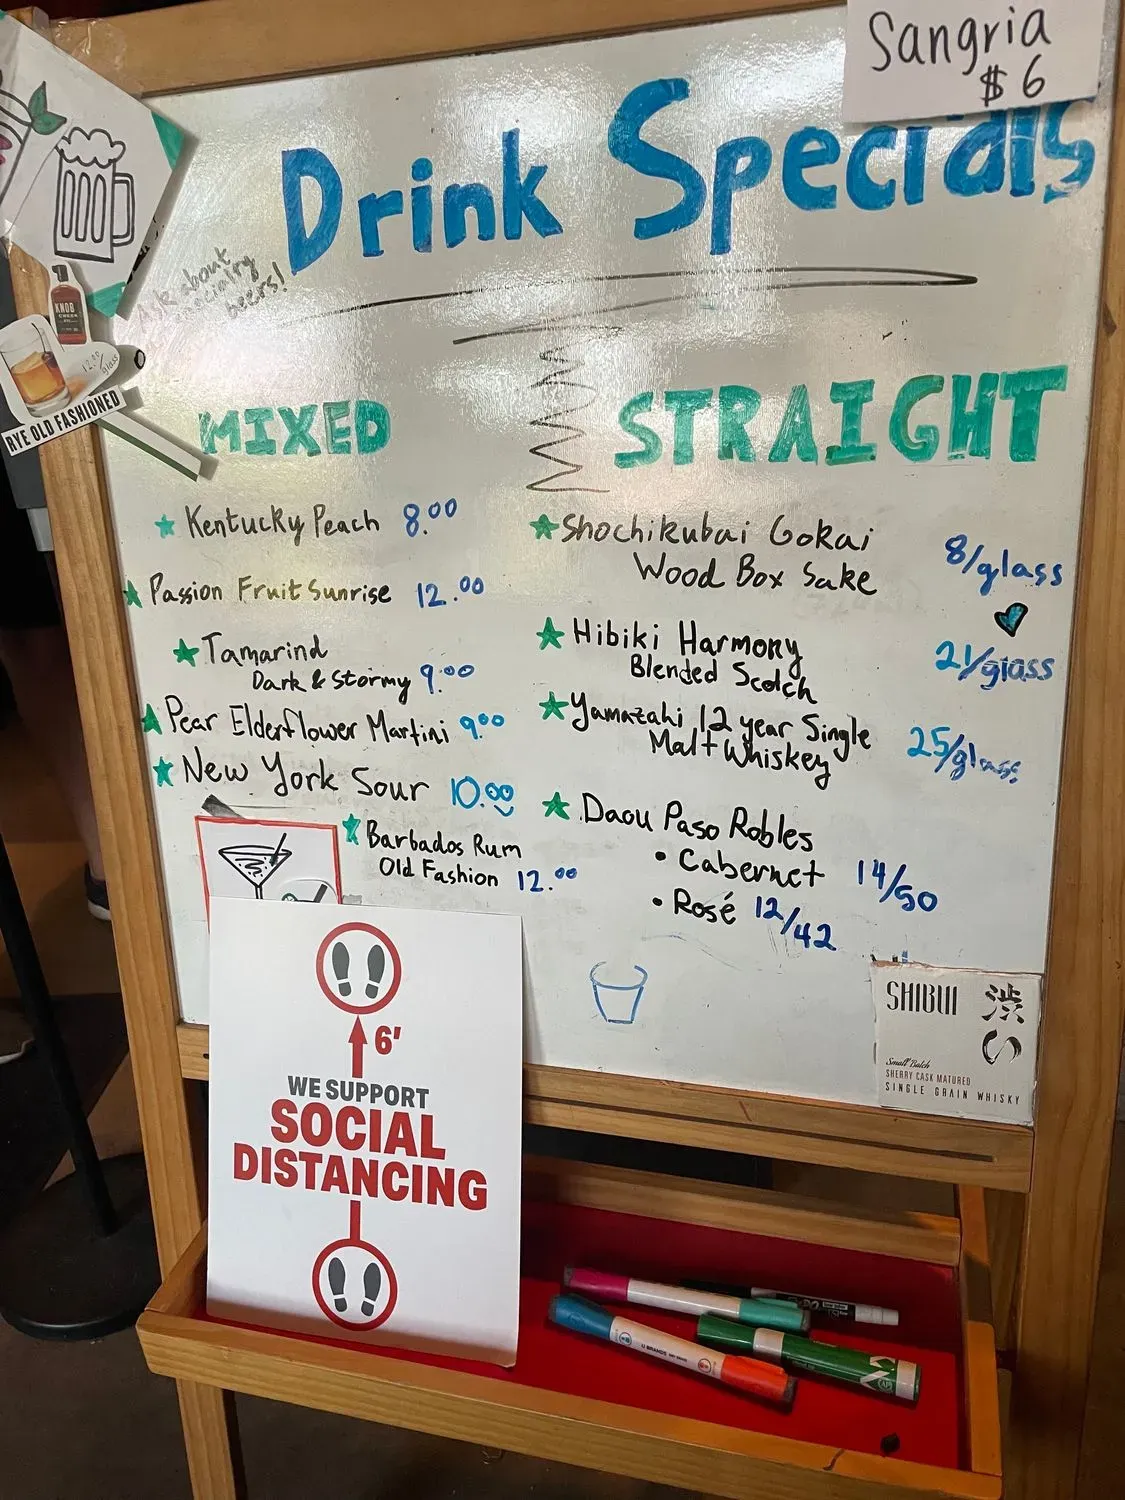 Sangria
$6
Drink Specials
Ask about
specialty
beers!
KNOB
CREEK
12.00/
glass
RYE OLD FASHIONED
MIXED
Kentucky Peach 8.00
Passion Fruit Sunrise 12.00
Tamarind
Dark & Stormy 9.00
Pear Elderflower Martini 9.00
New York Sour 10.00
Barbados Rum
Old Fashion 12.00
STRAIGHT
Shochikubai Gokai
Wood Box Sake 8/glass
Hibiki Harmony
Blended Scotch 21/glass
Yamazaki 12 year Single
Malt Whiskey 25/glass
Daou Paso Robles
• Cabernet 14/50
• Rosé 12/42
SHIBUI 渋い
Small Batch
SHERRY CASK MATURED
SINGLE GRAIN WHISKY
6'
WE SUPPORT
SOCIAL
DISTANCING
U BRANDS